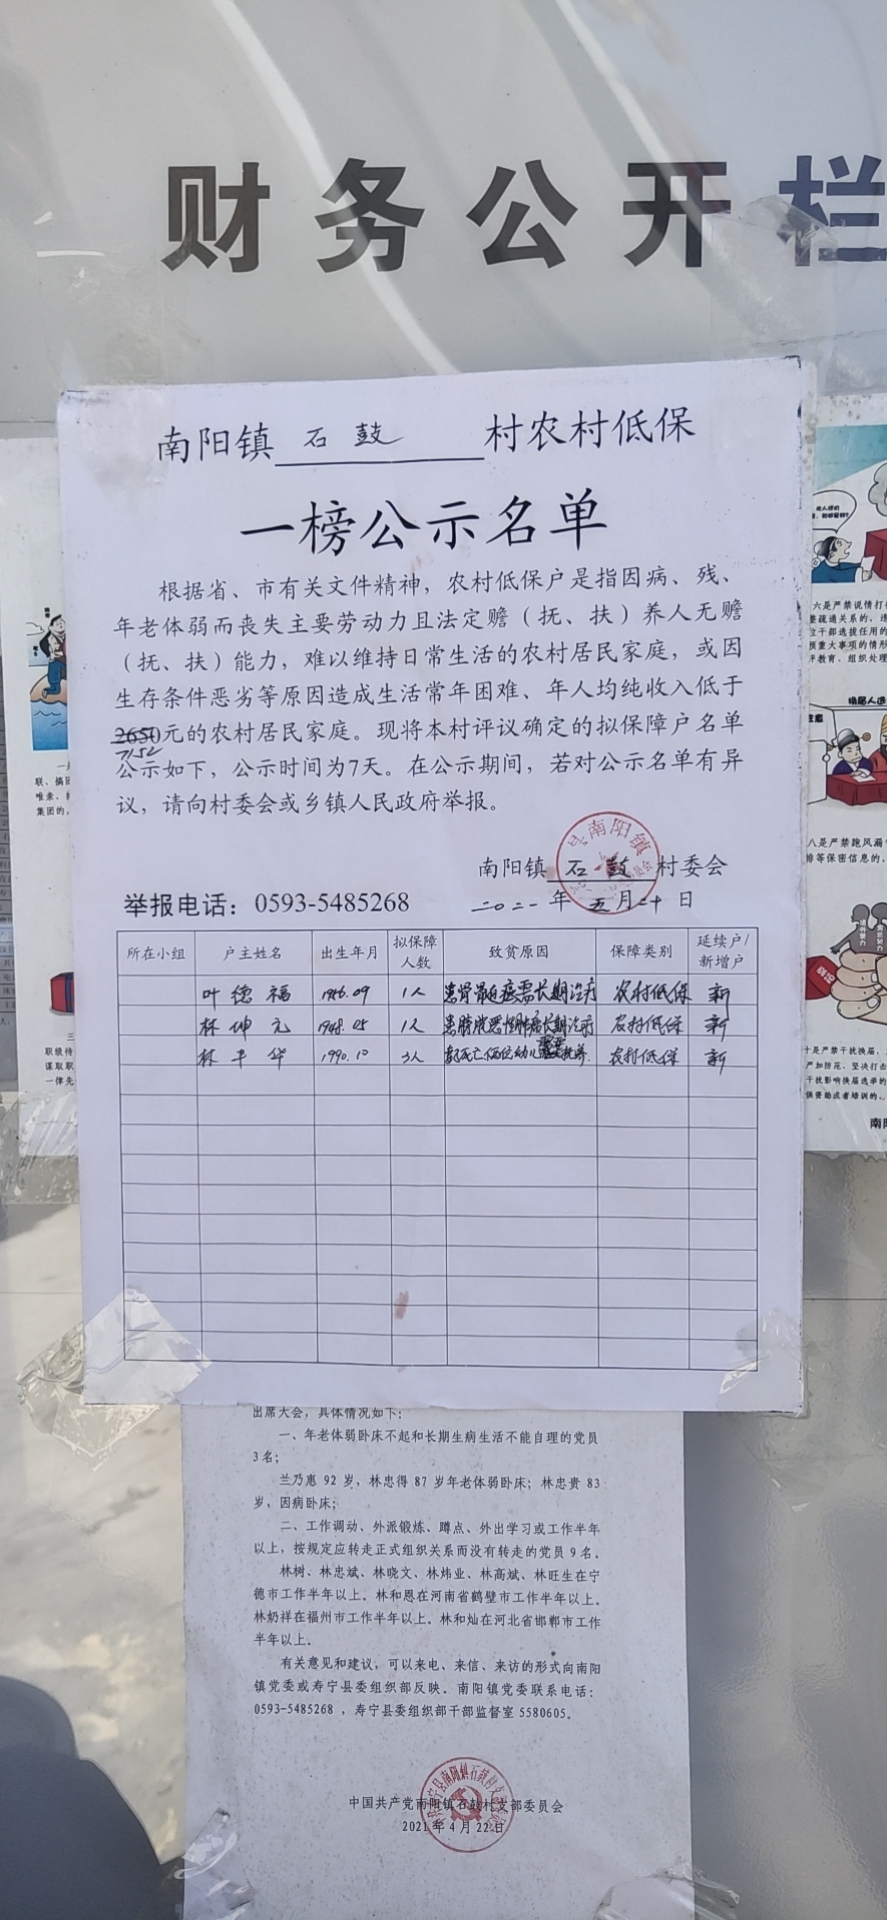 财务公开栏
南阳镇石鼓村农村低保
一榜公示名单
根据省、市有关文件精神，农村低保户是指因病、残、
年老体弱而丧失主要劳动力且法定赡（抚、扶）养人无赡
（抚、扶）能力，难以维持日常生活的农村居民家庭，或因
生存条件恶劣等原因造成生活常年困难、年人均纯收入低于
2650元的农村居民家庭。现将本村评议确定的拟保障户名单
7152
公示如下，公示时间为7天。在公示期间，若对公示名单有异
议，请向村委会或乡镇人民政府举报。
南阳镇石鼓村委会
举报电话：0593-5485268 二0二一年五月二十日
所在小组 户主姓名 出生年月 拟保障人数 致贫原因 保障类别 延续户/新增户
叶德福 19 6.09 1人 长期治疗 农村低保 新
林坤元 1948.05 1人 长期治疗 农村低保 新
林丰华 1990.10 3人 农村低保 新
出席大会，具体情况如下：
一、年老体弱卧床不起和长期生病生活不能自理的党员
3名；
兰乃惠 92 岁，林忠得 87 岁年老体弱卧床；林忠贵 83
岁，因病卧床；
二、工作调动、外派锻炼、蹲点、外出学习或工作半年
以上，按规定应转走正式组织关系而没有转走的党员 9 名。
林树、林忠斌、林晓文、林炜业、林高斌、林旺生在宁
德市工作半年以上。林和恩在河南省鹤壁市工作半年以上。
林奶祥在福州市工作半年以上。林和灿在河北省邯郸市工作
半年以上。
有关意见和建议，可以来电、来信、来访的形式向南阳
镇党委或寿宁县委组织部反映。南阳镇党委联系电话：
0593-5485268，寿宁县委组织部干部监督室 5580605。
中国共产党南阳镇石鼓村支部委员会
2021 年 4 月 22 日
六是严禁说情打
八是严禁跑风漏
排等保密信息的，
十是严禁干扰换届，
严加防范，坚决打击
干扰影响换届选举的
供资助或者培训的，
联、搞团
唯亲、
集团的，
职级待
谋取职
一律先